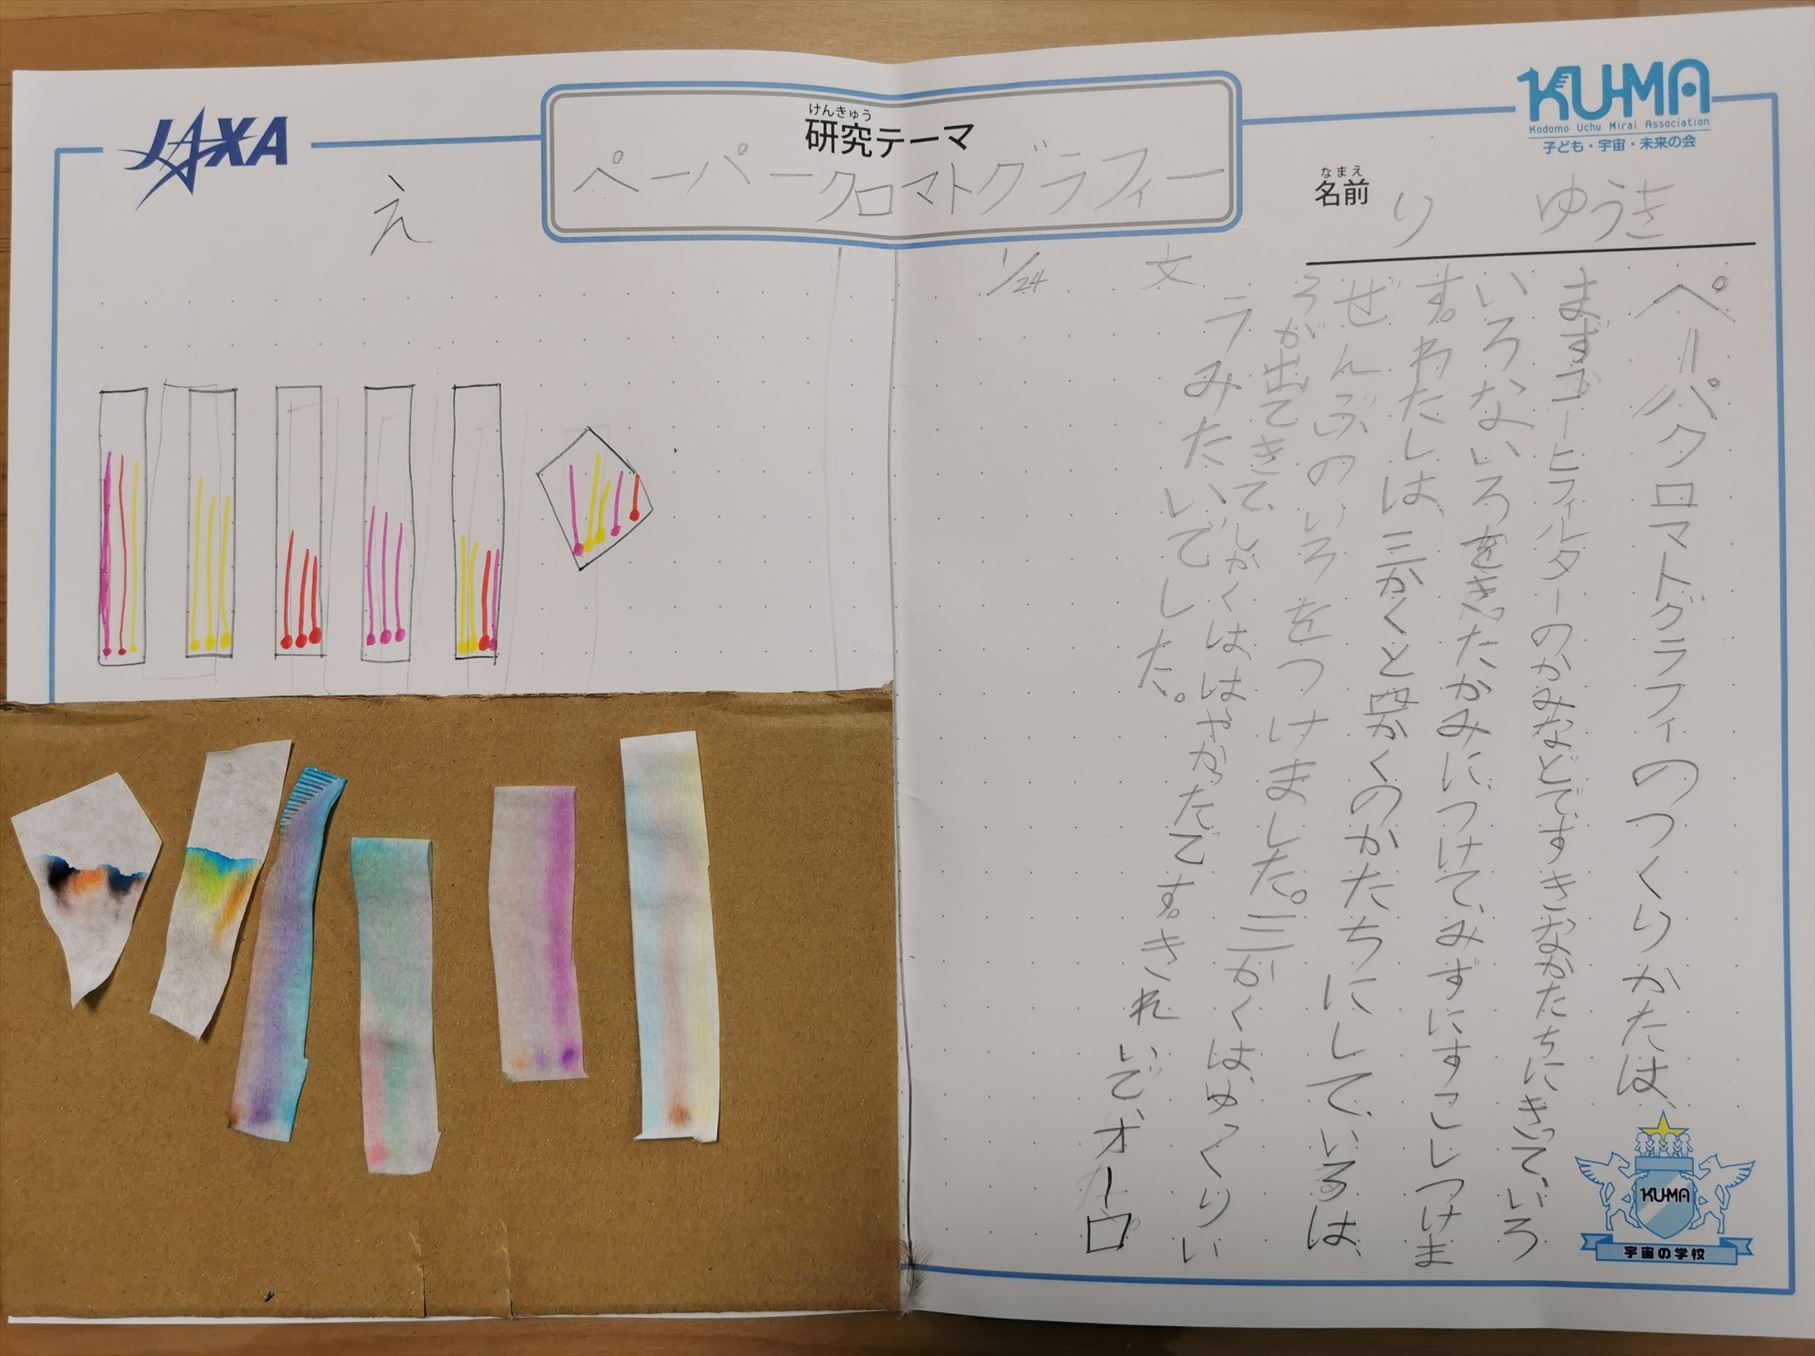 JAXA
けんきゅう
研究テーマ
ペーパークロマトグラフィー
KU-MA
Kodomo Uchu Mirai Association
子ども・宇宙・未来の会
なまえ
名前
り ゆうき
え
1/24
文
ペーパクロマトグラフィのつくりかたは、
まずコーヒフィルターのかみなどですきなかたちにきって、いろ
いろないろをきったかみにつけて、みずにすこしつけま
す。わたしは、三かくと四かくのかたちにして、いろは、
ぜんぶのいろをつけました。三かくは、ゆっくりい
ろが出てきて、しかくは、はやかったです。きれいで、オーロ
ラみたいでした。
KU-MA
宇宙の学校